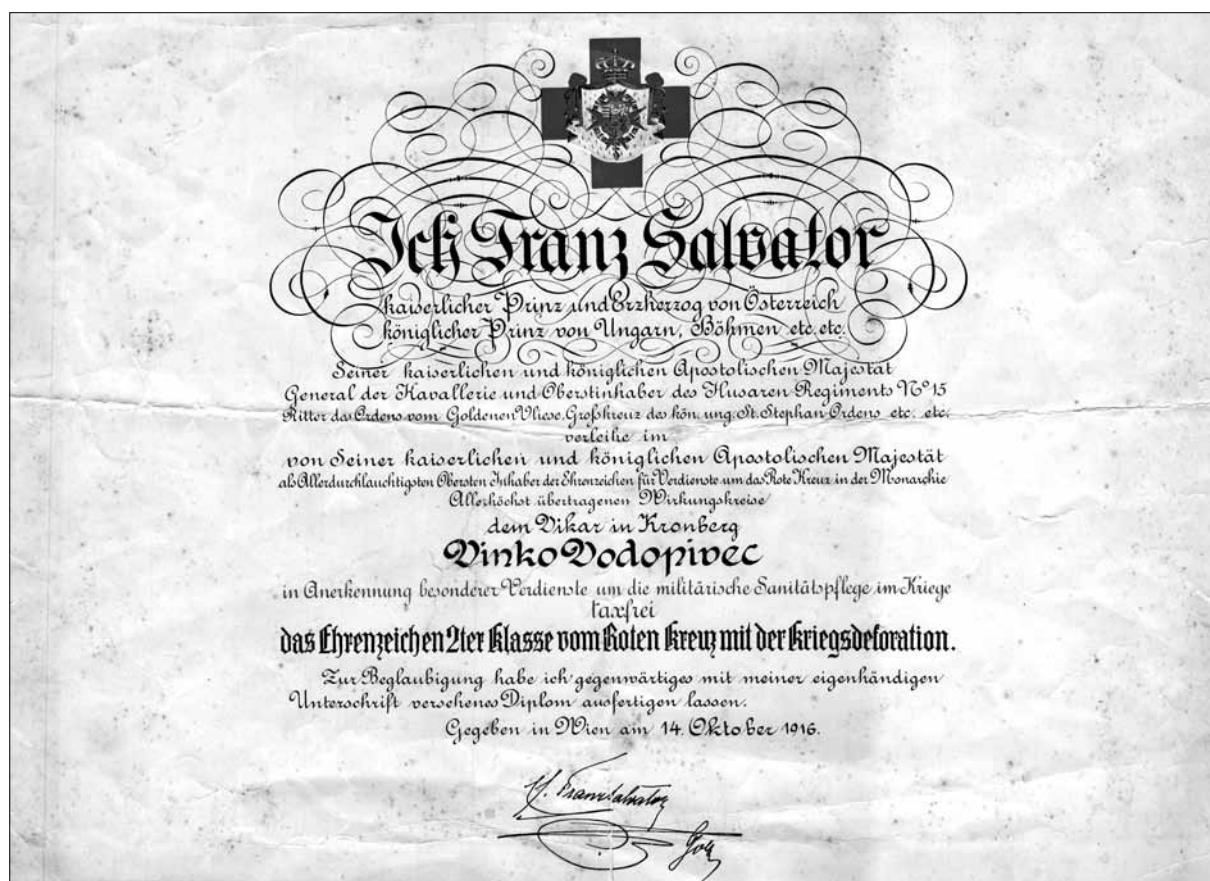 Ich Franz Salvator
kaiserlicher Prinz und Erzherzog von Österreich
königlicher Prinz von Ungarn, Böhmen etc. etc.
Seiner kaiserlichen und königlichen Apostolischen Majestät
General der Kavallerie und Oberstinhaber des Husaren Regiments Nº 15
Ritter das Ordens vom Goldenen Vliese, Großkreuz des kön. ung. St. Stephan Ordens etc. etc.
verleihe im
von Seiner kaiserlichen und königlichen Apostolischen Majestät
als Allerdurchlauchtigsten Obersten Inhaber der Ehrenzeichen für Verdienste um das Rote Kreuz in der Monarchie
Allerhöchst übertragenen Wirkungskreise
dem Vikar in Kronberg
Vinko Vodopivec
in Anerkennung besonderer Verdienste um die militärische Sanitätspflege im Kriege
taxfrei
das Ehrenzeichen 2ter Klasse vom Roten Kreuz mit der Kriegsdekoration.
Zur Beglaubigung habe ich gegenwärtiges mit meiner eigenhändigen
Unterschrift versehenes Diplom ausfertigen lassen.
Gegeben in Wien am 14. Oktober 1916.
Franz Salvator